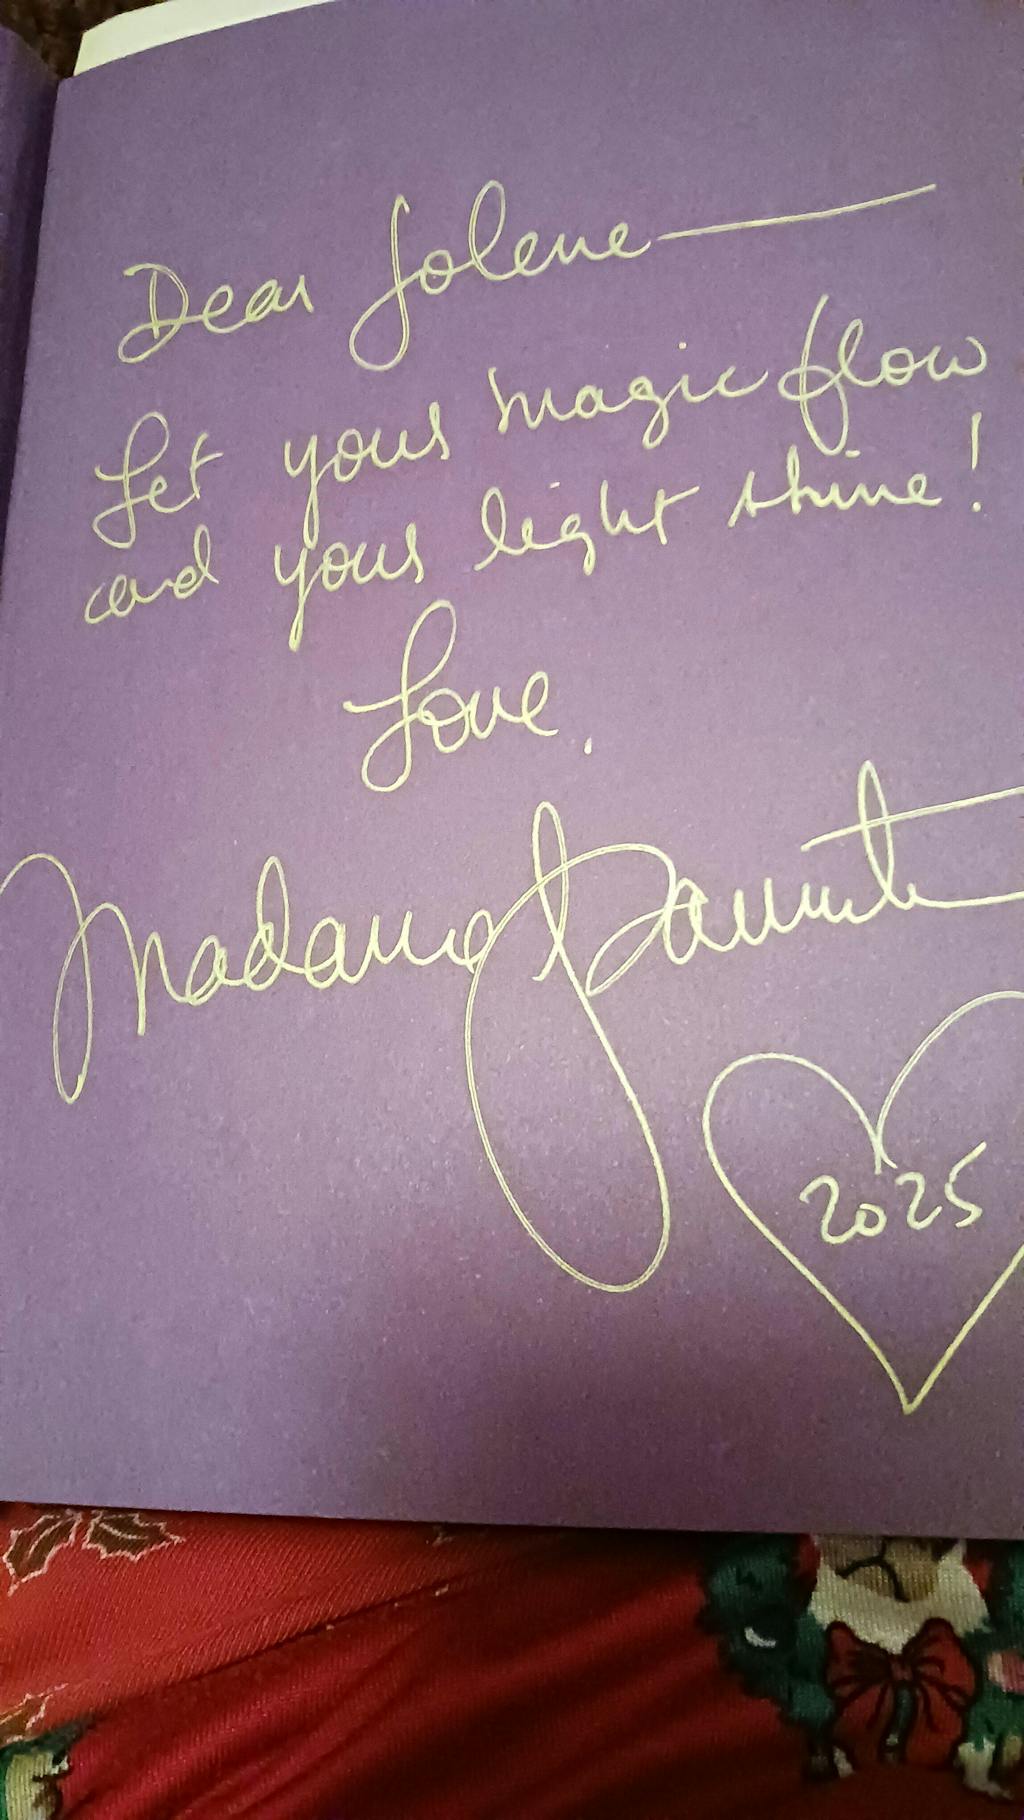 Dear Jolene
Let your magic flow
and your light shine!
Love,
Madame Pamita
2025